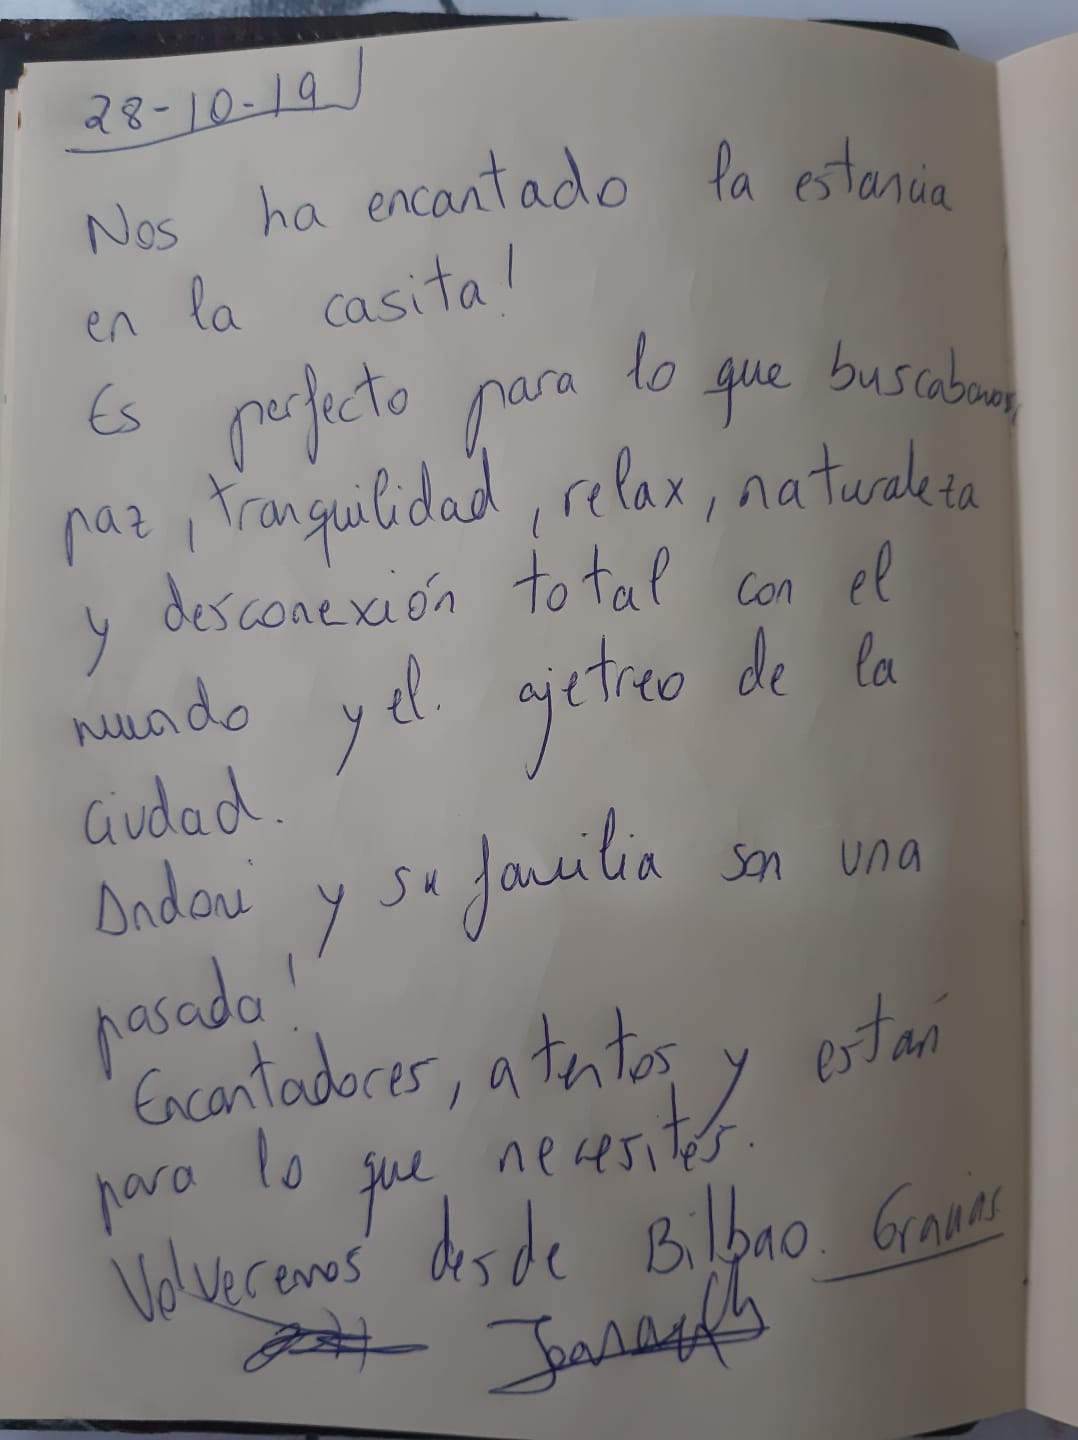 28-10-19
Nos ha encantado la estancia
en la casita!
Es perfecto para lo que buscabamos,
paz, tranquilidad, relax, naturaleza
y desconexión total con el
mundo y el. ajetreo de la
Ciudad.
Andoni y su familia son una
pasada!
Encantadores, atentos y están
para lo que necesites.
Volveremos desde Bilbao. Gracias